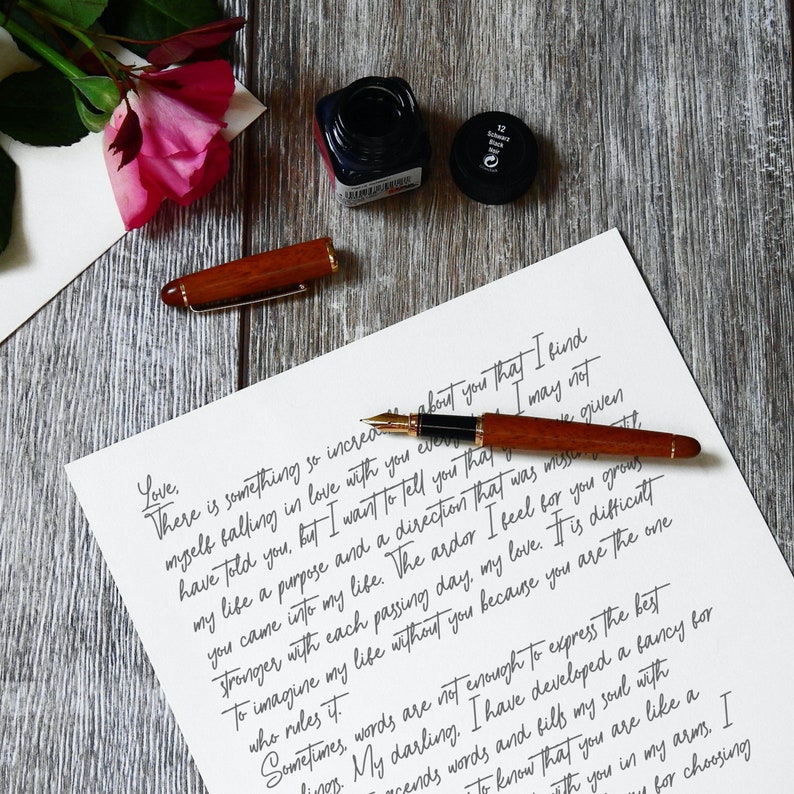 12
Schwarz
Black
Noir
Love,
There is something so about you that I find
myself falling in love with you I may not
have told you, but I want to tell you that given
my life a purpose and a direction that was missing
you came into my life. The ardor I feel for you grows
stronger with each passing day, my love. It is difficult
to imagine my life without you because you are the one
who rules it.
Sometimes, words are not enough to express the best
My darling, I have developed a fancy for
words and fills my soul with
to know that you are like a
with you in my arms, I
for choosing